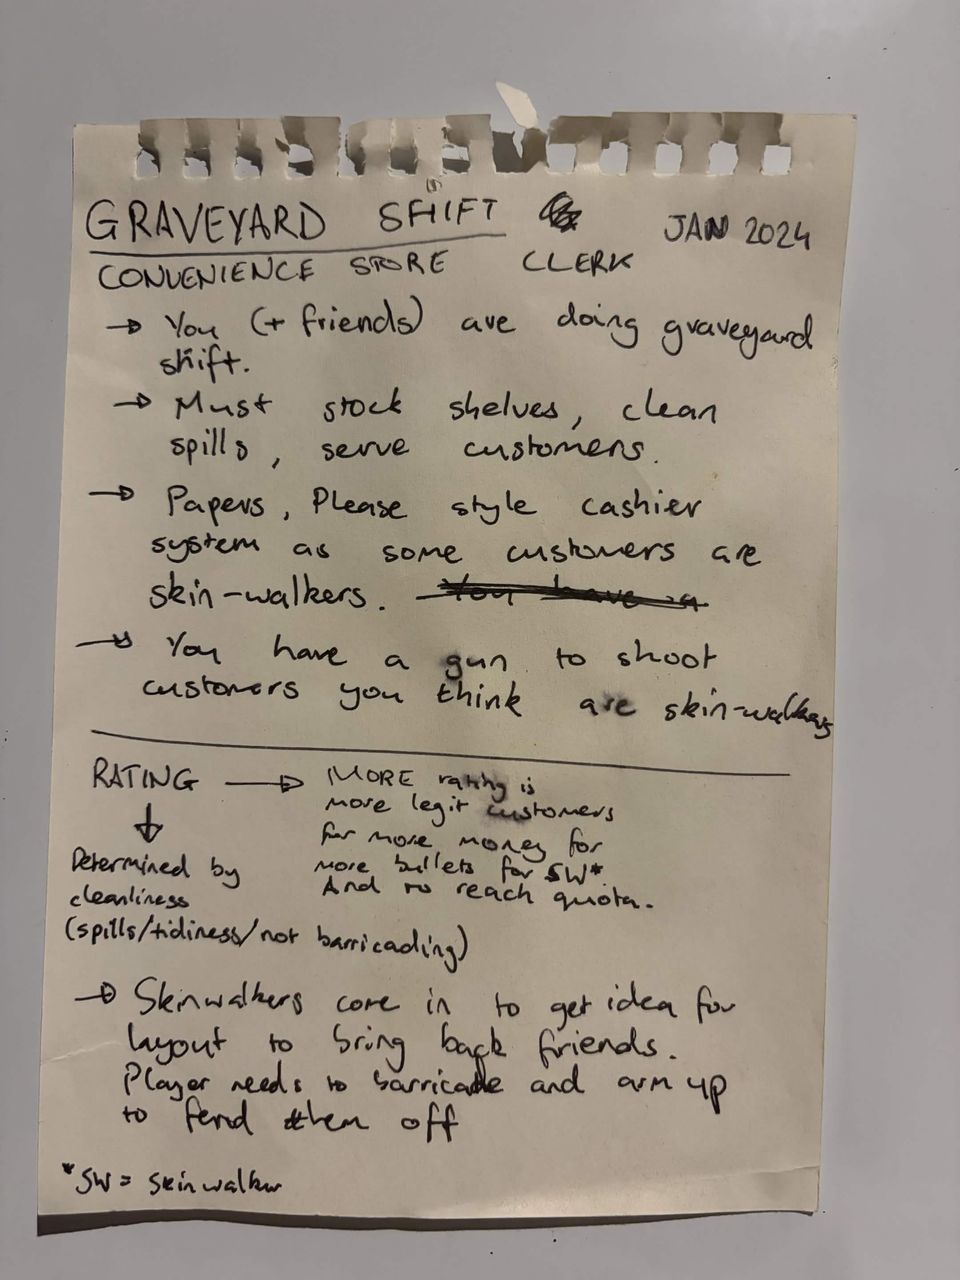 GRAVEYARD SHIFT
JAN 2024
CONVENIENCE STORE CLERK
→ You (+ friends) are doing graveyard
shift.
→ Must stock shelves, clean
spills, serve customers.
→ Papers, Please style cashier
system as some customers are
skin-walkers. You have a
→ You have a gun to shoot
customers you think are skin-walkers
RATING → MORE rating is
more legit customers
for more money for
more bullets for SW*
And to reach quota.
↓
Determined by
cleanliness
(spills/tidiness/not barricading)
→ Skinwalkers come in to get idea for
layout to bring back friends.
Player needs to barricade and arm up
to fend them off
*SW = skinwalker